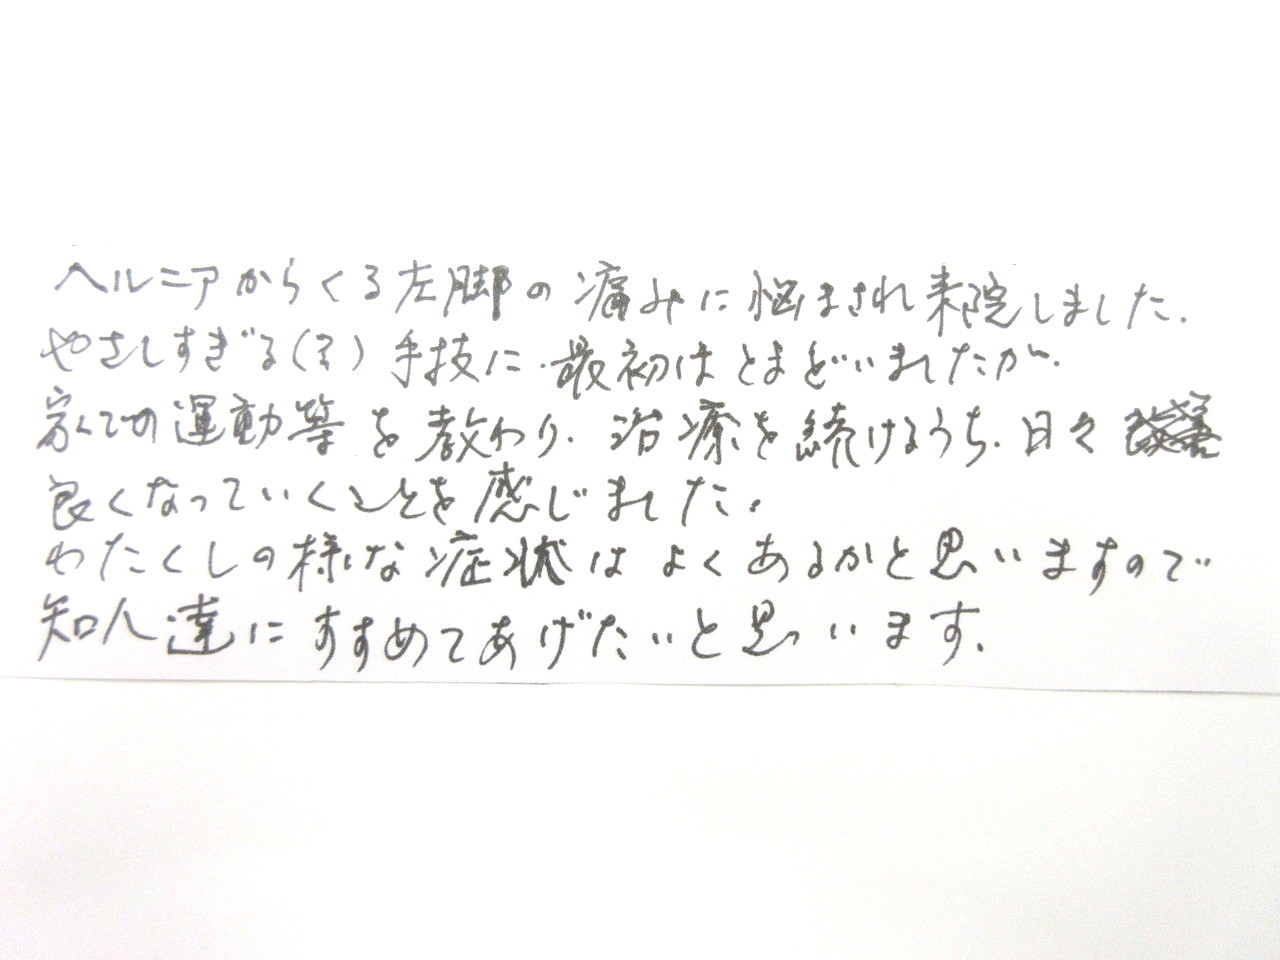 ヘルニアからくる左脚の痛みに悩まされ来院しました.
やさしすぎる(?)手技に.最初はとまどいましたが.
家での運動等を教わり.治療を続けるうち.日々
良くなっていくことを感じました。
わたくしの様な症状はよくあるかと思いますので
知人達にすすめてあげたいと思います.